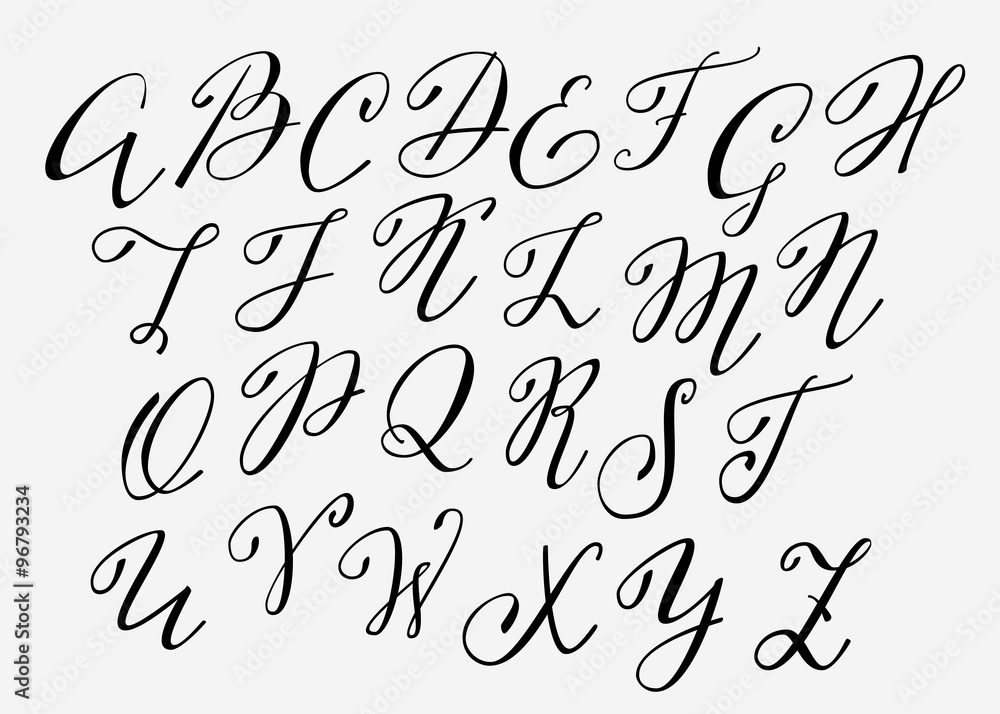 A B C D E F G H
I J K L M N
O P Q R S T
U V W X Y Z
Adobe Stock | #96793234